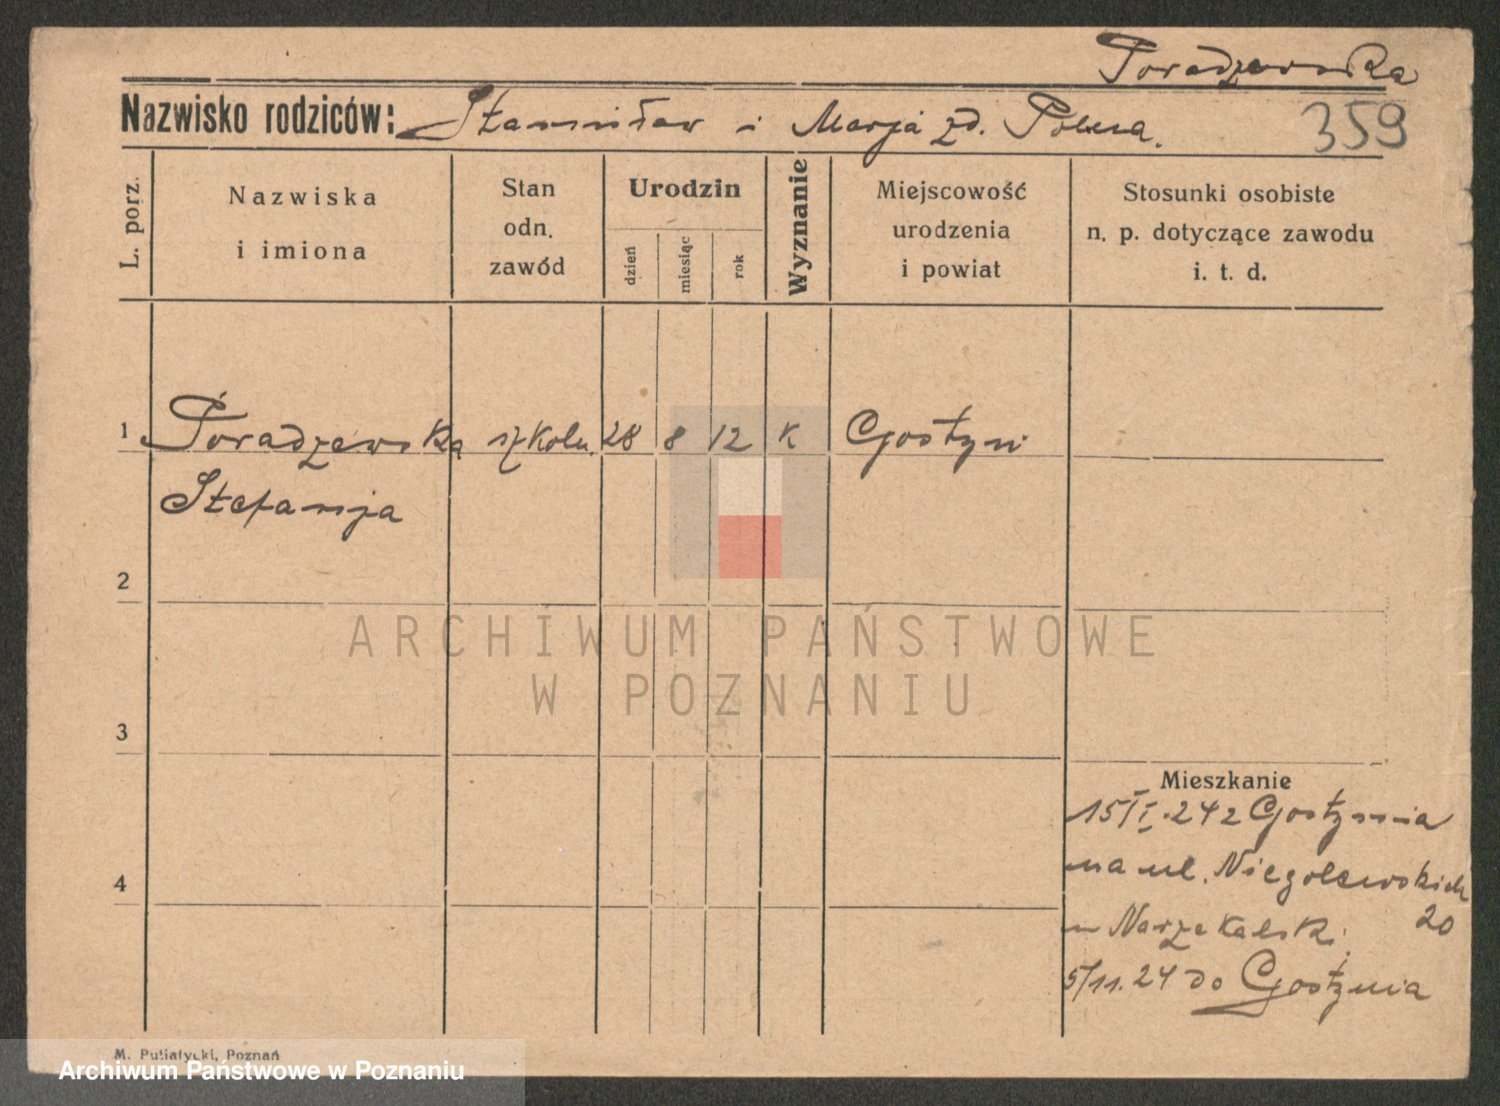 Poradzewska
Nazwisko rodziców: Stanisław i Marja zd. Polna.
359
L. porz.
Nazwiska
i imiona
Stan
odn.
zawód
Urodzin
dzień
miesiąc
rok
Wyznanie
Miejscowość
urodzenia
i powiat
Stosunki osobiste
n. p. dotyczące zawodu
i. t. d.
1 Poradzewska szkoln. 28 8 12 K Gostyń
Stefanja
2
ARCHIWUM PAŃSTWOWE
W POZNANIU
3
Mieszkanie
15/I.24 z Gostynia
na ul. Niegolewskich
20
4
5/11.24 do Gostynia
M. Putiatycki, Poznań
Archiwum Państwowe w Poznaniu